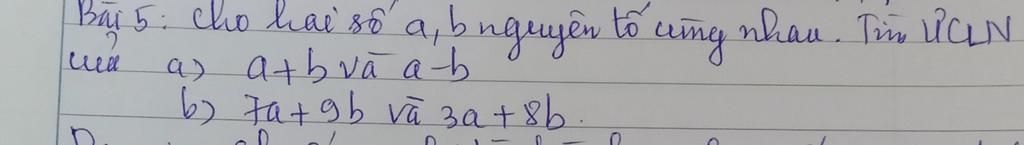 Bài 5: Cho hai số a, b nguyên tố cùng nhau. Tìm ƯCLN
của a) a+b và a-b
b) 7a+9b và 3a+8b.